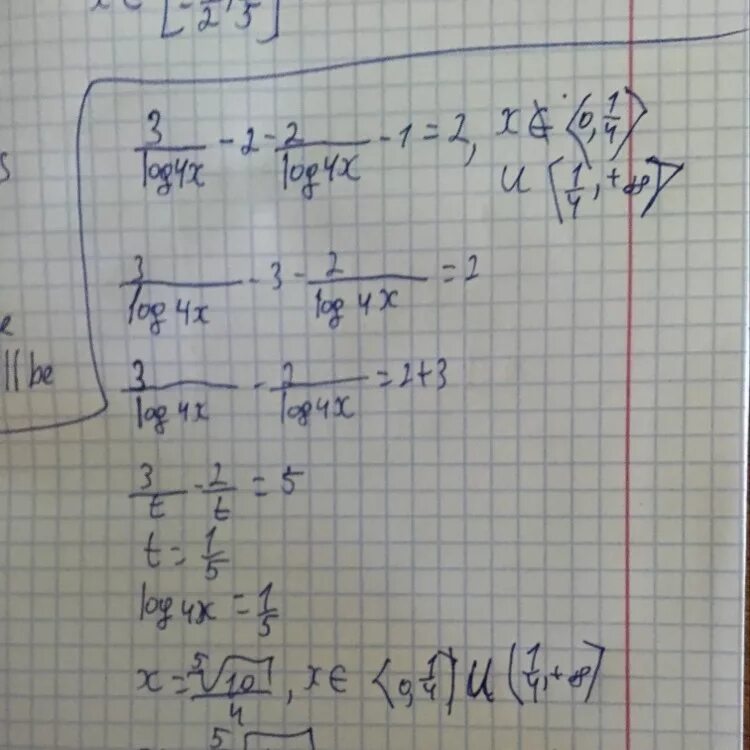 x ∈ [-1/2, 1/5]
3/log4x - 2 - 2/log4x - 1 = 2, x ∈ ⟨0, 1/4⟩
U [1/4, +∞⟩
3/log4x - 3 - 2/log4x = 2
ll be
3/log4x - 2/log4x = 2+3
3/t - 2/t = 5
t = 1/5
log4x = 1/5
x = ⁵√10/4, x ∈ ⟨0, 1/4⟩ U (1/4, +∞⟩
5